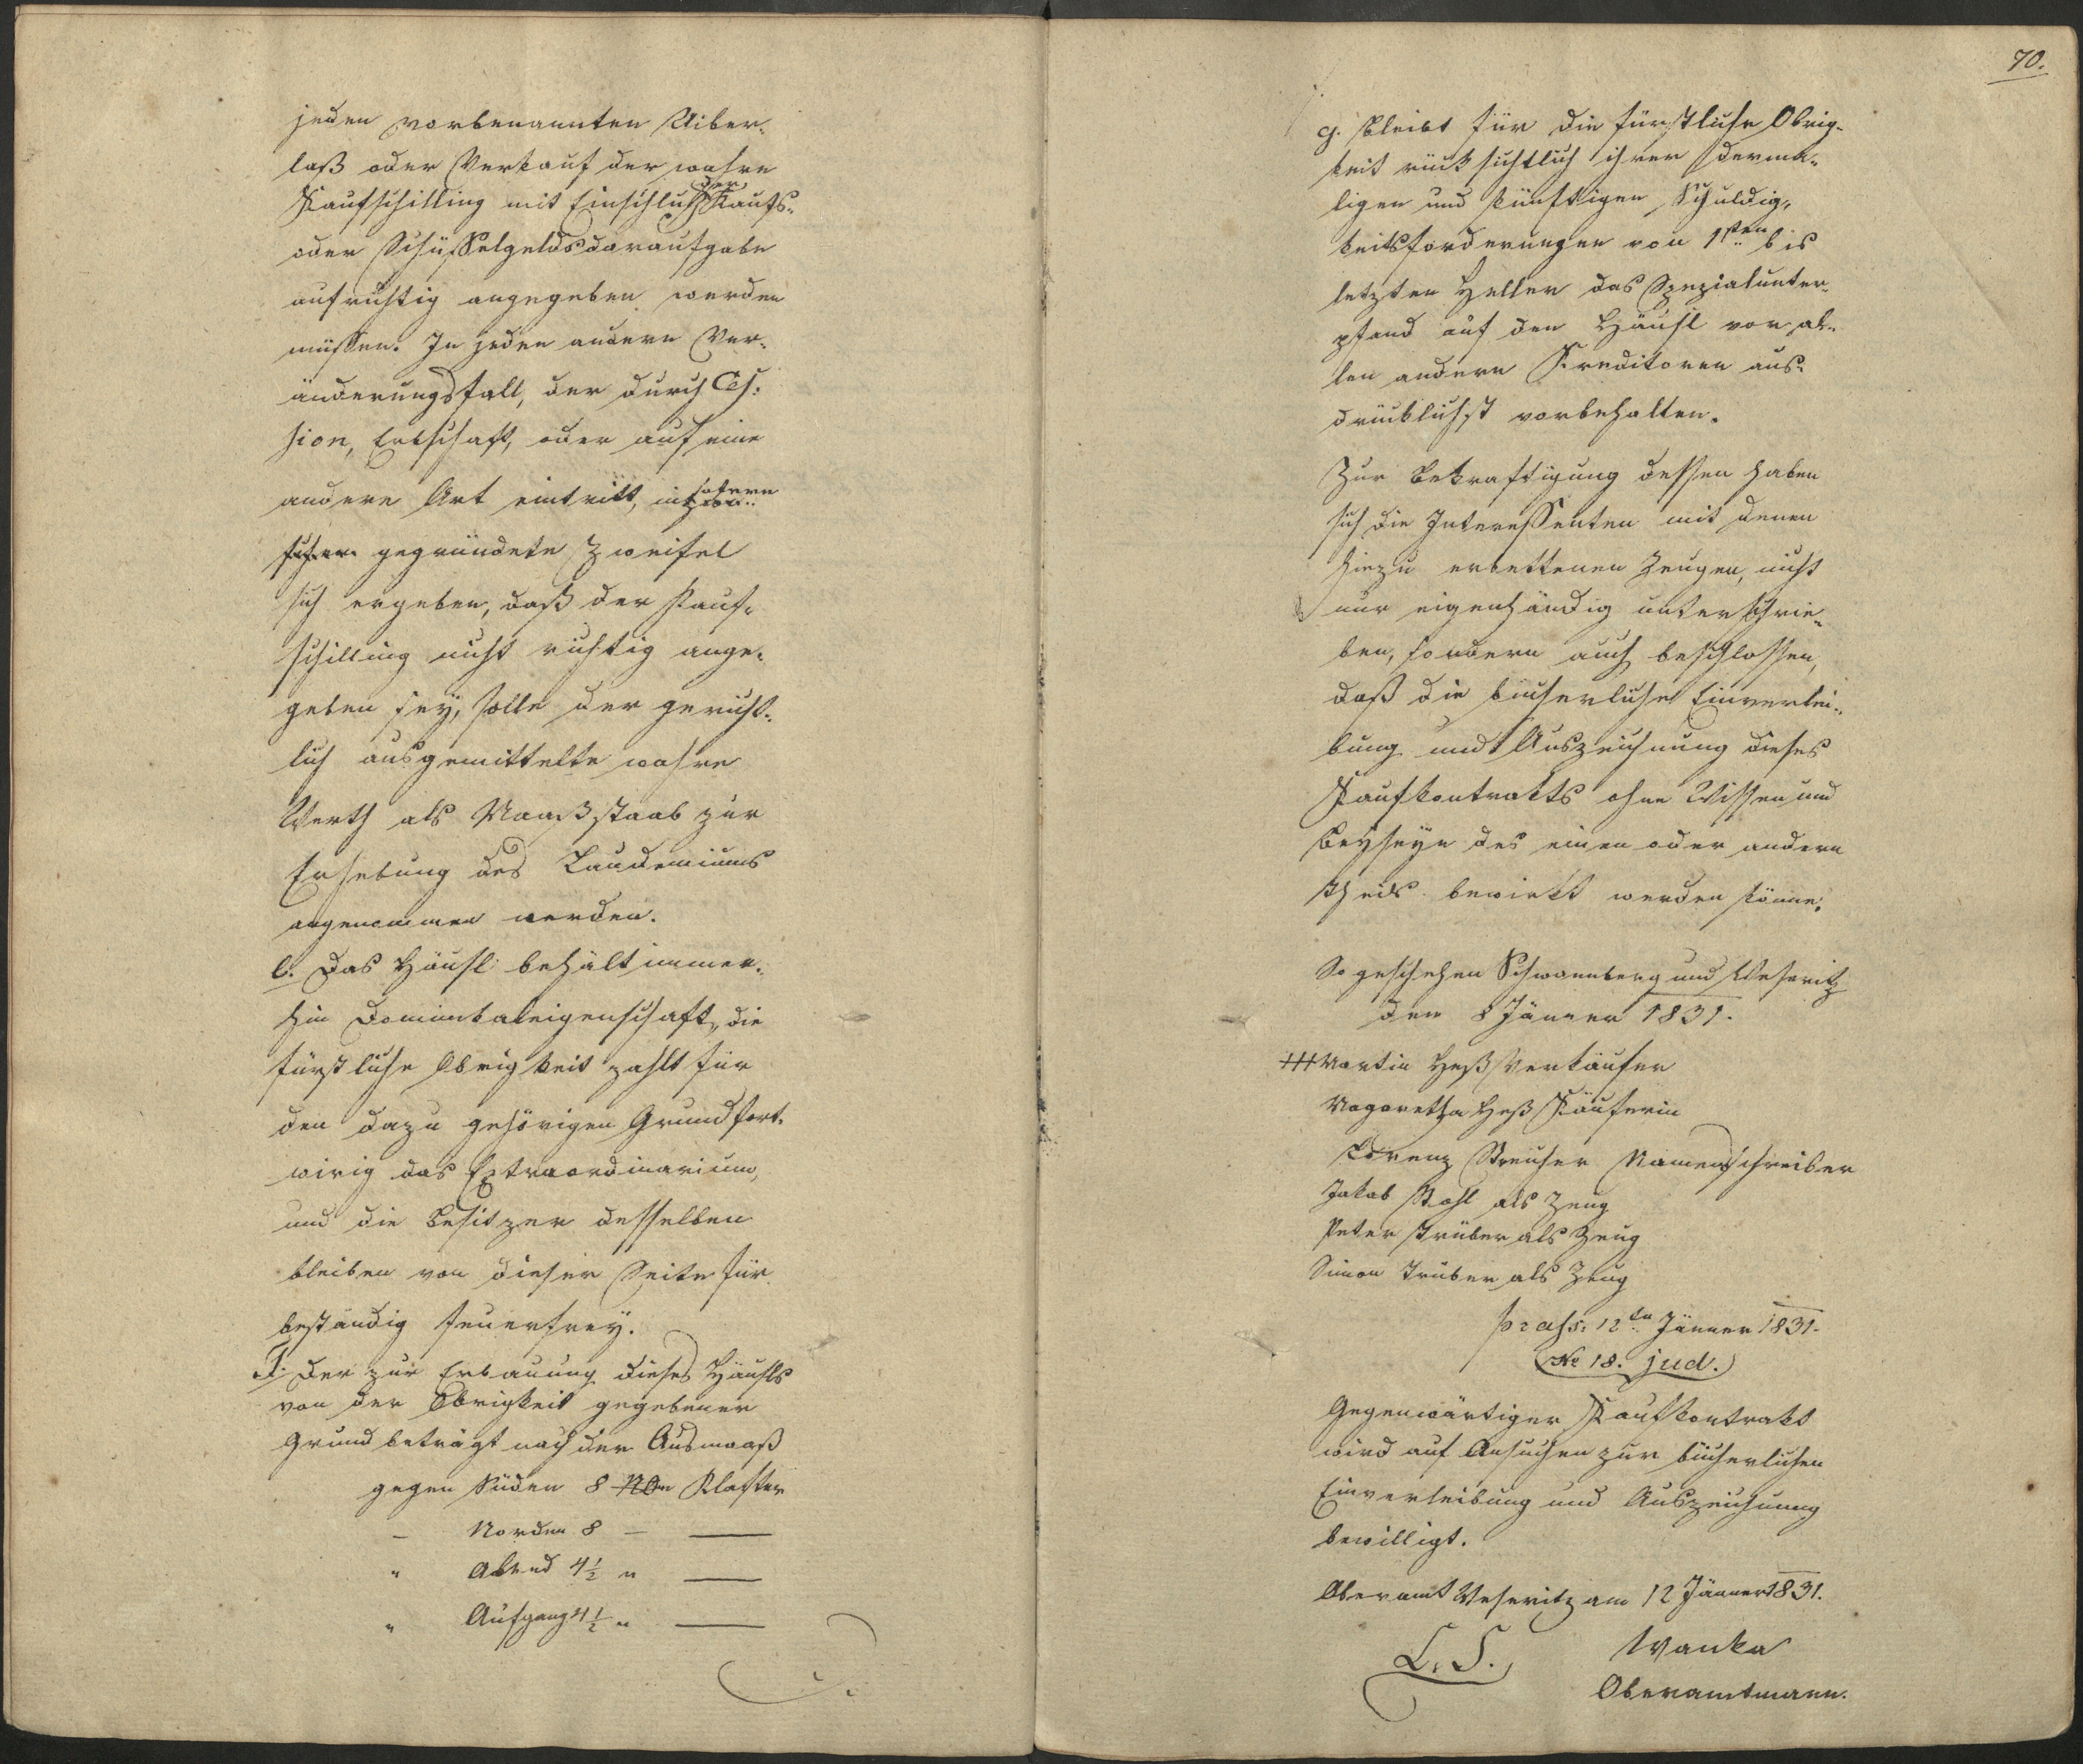 jeden vorbenannten Uiber-
laß oder Verkauf der wahre
Kaufschilling mit Einschluß der Kaufs-
oder Schüsselgeldsdaraufgabe
aufrichtig angegeben werden
müssen. In jeden andern Ver-
änderungsfall, der durch Ces-
sion, Erbschaft, oder auf eine
andere Art eintritt, insofern
gegründete Zweifel
sich ergeben, daß der Kauf-
schilling nicht richtig ange-
geben sey, solle der gericht-
lich ausgemittelte wahre
Werth als Maaßstaab zur
Erhebung des Laudemiums
angenommen werden.
e. Das Häusl behält immer-
hin Dominikaleigenschaft, die
fürstliche Obrigkeit zahlt für
den dazu gehörigen Grund fort-
wirig das Extraordinarium,
und die Besitzer desselben
bleiben von dieser Seite für
beständig steuerfrey.
f. Der zur Erbauung dieses Häusls
von der Obrigkeit gegebener
Grund beträgt nach der Ausmaaß
gegen Süden 8 Klafter
– Norden 8 – —
" Abend 4½ " —
" Aufgang 4½ " —
70.
g. Bleibt für die fürstliche Obrig-
keit rücksichtlich ihrer derma-
ligen und künftigen Schuldig-
keitsforderungen von 1sten bis
letzten Heller das Spezialunter-
pfand auf den Häusl vor al-
len andern Kreditoren aus-
drücklichst vorbehalten.
Zur Bekräftigung dessen haben
sich die Interessenten mit denen
hiezu erbettenen Zeugen, nicht
nur eigenhändig unterschrie-
ben, sondern auch beschlossen,
daß die bücherliche Einverlei-
bung und Auszeichnung dieses
Kaufkontrakts ohne Wissen und
Beyseyn des einen oder andern
Theils bewirkt werden könne.
So geschehen Schwannberg und Weseritz
den 8 Jänner 1831.
+++ Martin Heß Verkäufer
Magaretha Heß Käuferin
Lorenz Streicher Namensschreiber
Jakob Stahl als Zeug
Peter Trüber als Zeug
Simon Trüber als Zeug
praes: 12ten Jänner 1831.
No 18. jud.
Gegenwärtiger Kaufkontrakt
wird auf Ansuchen zur bücherlichen
Einverleibung und Auszeichnung
bewilligt.
Oberamt Weseritz am 12 Jänner 1831.
L. S. Wanka
Oberamtmann.